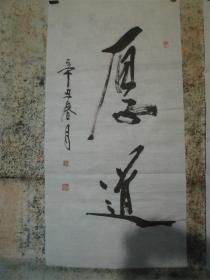 厚道
辛丑春月